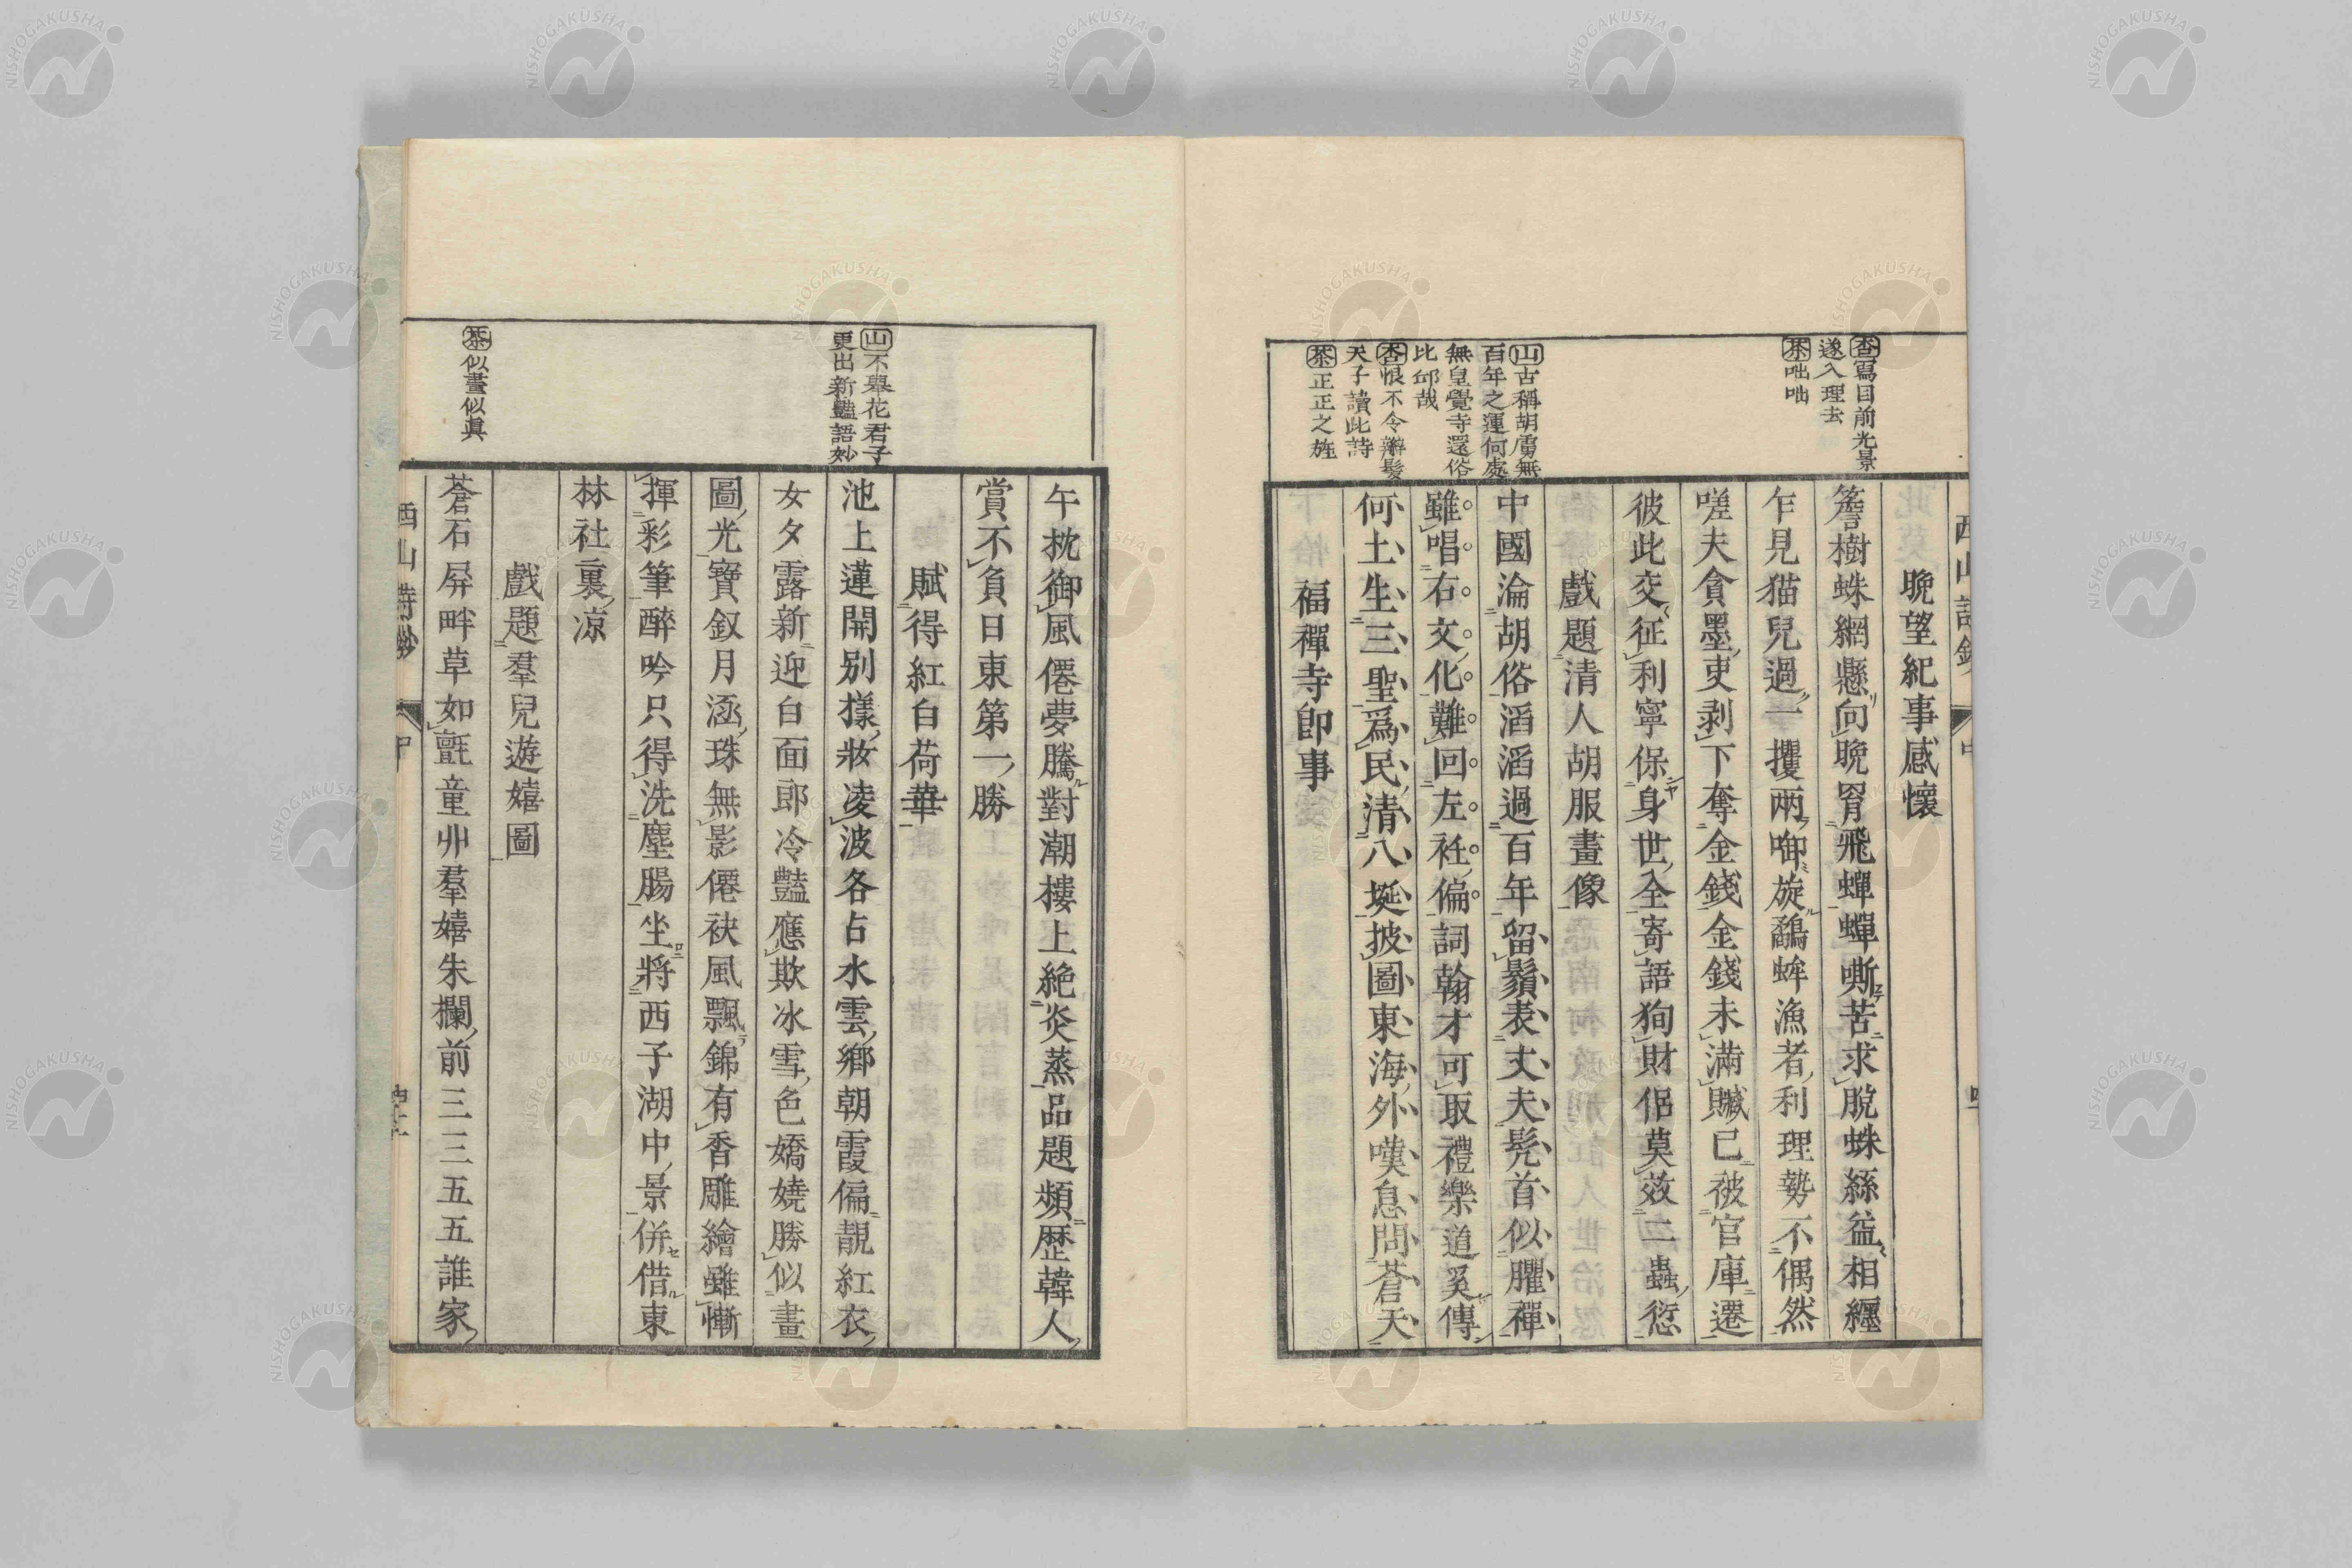 西山詩鈔
中
晩望紀事感懷
簷樹蛛網懸向晩罥飛蟬蟬嘶苦求脫蛛絲益相纒
乍見猫兒過一攫兩啣旋鷸蚌漁者利理勢不偶然
嗟夫貪墨吏剥下奪金錢金錢未滿贓已被官庫遷
彼此交征利寧保身世全寄語狥財侶莫效二蟲愆
戲題清人胡服畫像
中國淪胡俗滔滔過百年留鬚表丈夫髠首似臞禪
雖唱右文化難回左衽偏詞翰才可取禮樂道奚傳
何土生三聖爲民清八埏披圖東海外嘆息問蒼天
福禪寺卽事
杏寫目前光景
遂入理去
茶咄咄
山古稱胡虜無
百年之運何處
無皇覺寺還俗
比邱哉
杏恨不令辮髮
天子讀此詩
茶正正之旌
午枕御風僊夢騰對潮樓上絶炎蒸品題頻歴韓人
賞不負日東第一勝
賦得紅白荷華
池上蓮開別樣妝凌波各占水雲鄉朝霞偏靚紅衣
女夕露新迎白面郎冷豔應欺冰雪色嬌嬈勝似畫
圖光寶釵月涵珠無影僊袂風飄錦有香雕繪雖慚
揮彩筆醉吟只得洗塵腸坐將西子湖中景併借東
林社裏凉
戲題羣兒遊嬉圖
蒼石屏畔草如氈童丱羣嬉朱欄前三三五五誰家
山不舉花君子
更出新豔語妙
茶似畫似眞
西山詩鈔
中